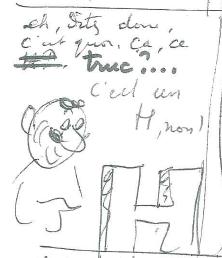 eh, dites donc,
c'est quoi, ça, ce
truc?....
C'est un
H, non!
H